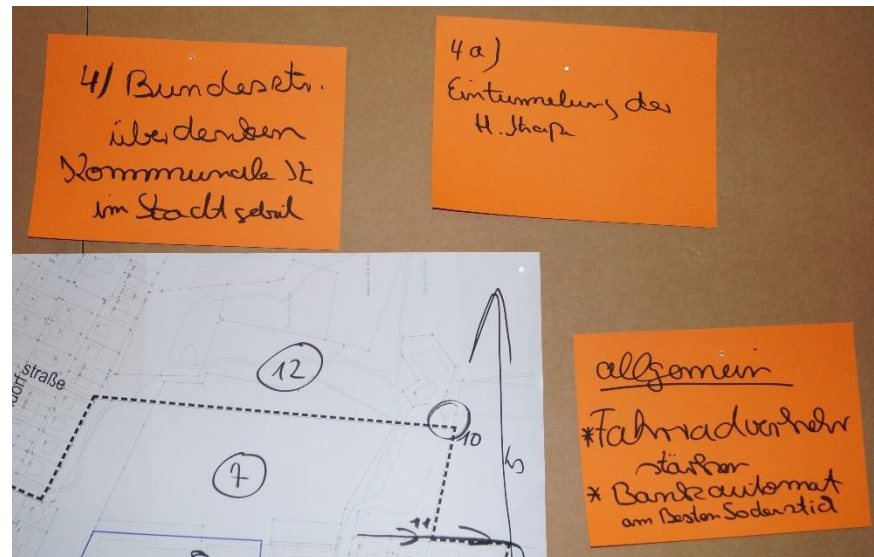 4) Bundesstr.
überdenken
Kommunale Str
im Stadtgebiet
4a)
Eintunnelung der
H. Straße
dorfstraße
12
10
7
11
5
allgemein
*Fahrradverkehr
stärken
* Bankautomat
am Besten Soderstich